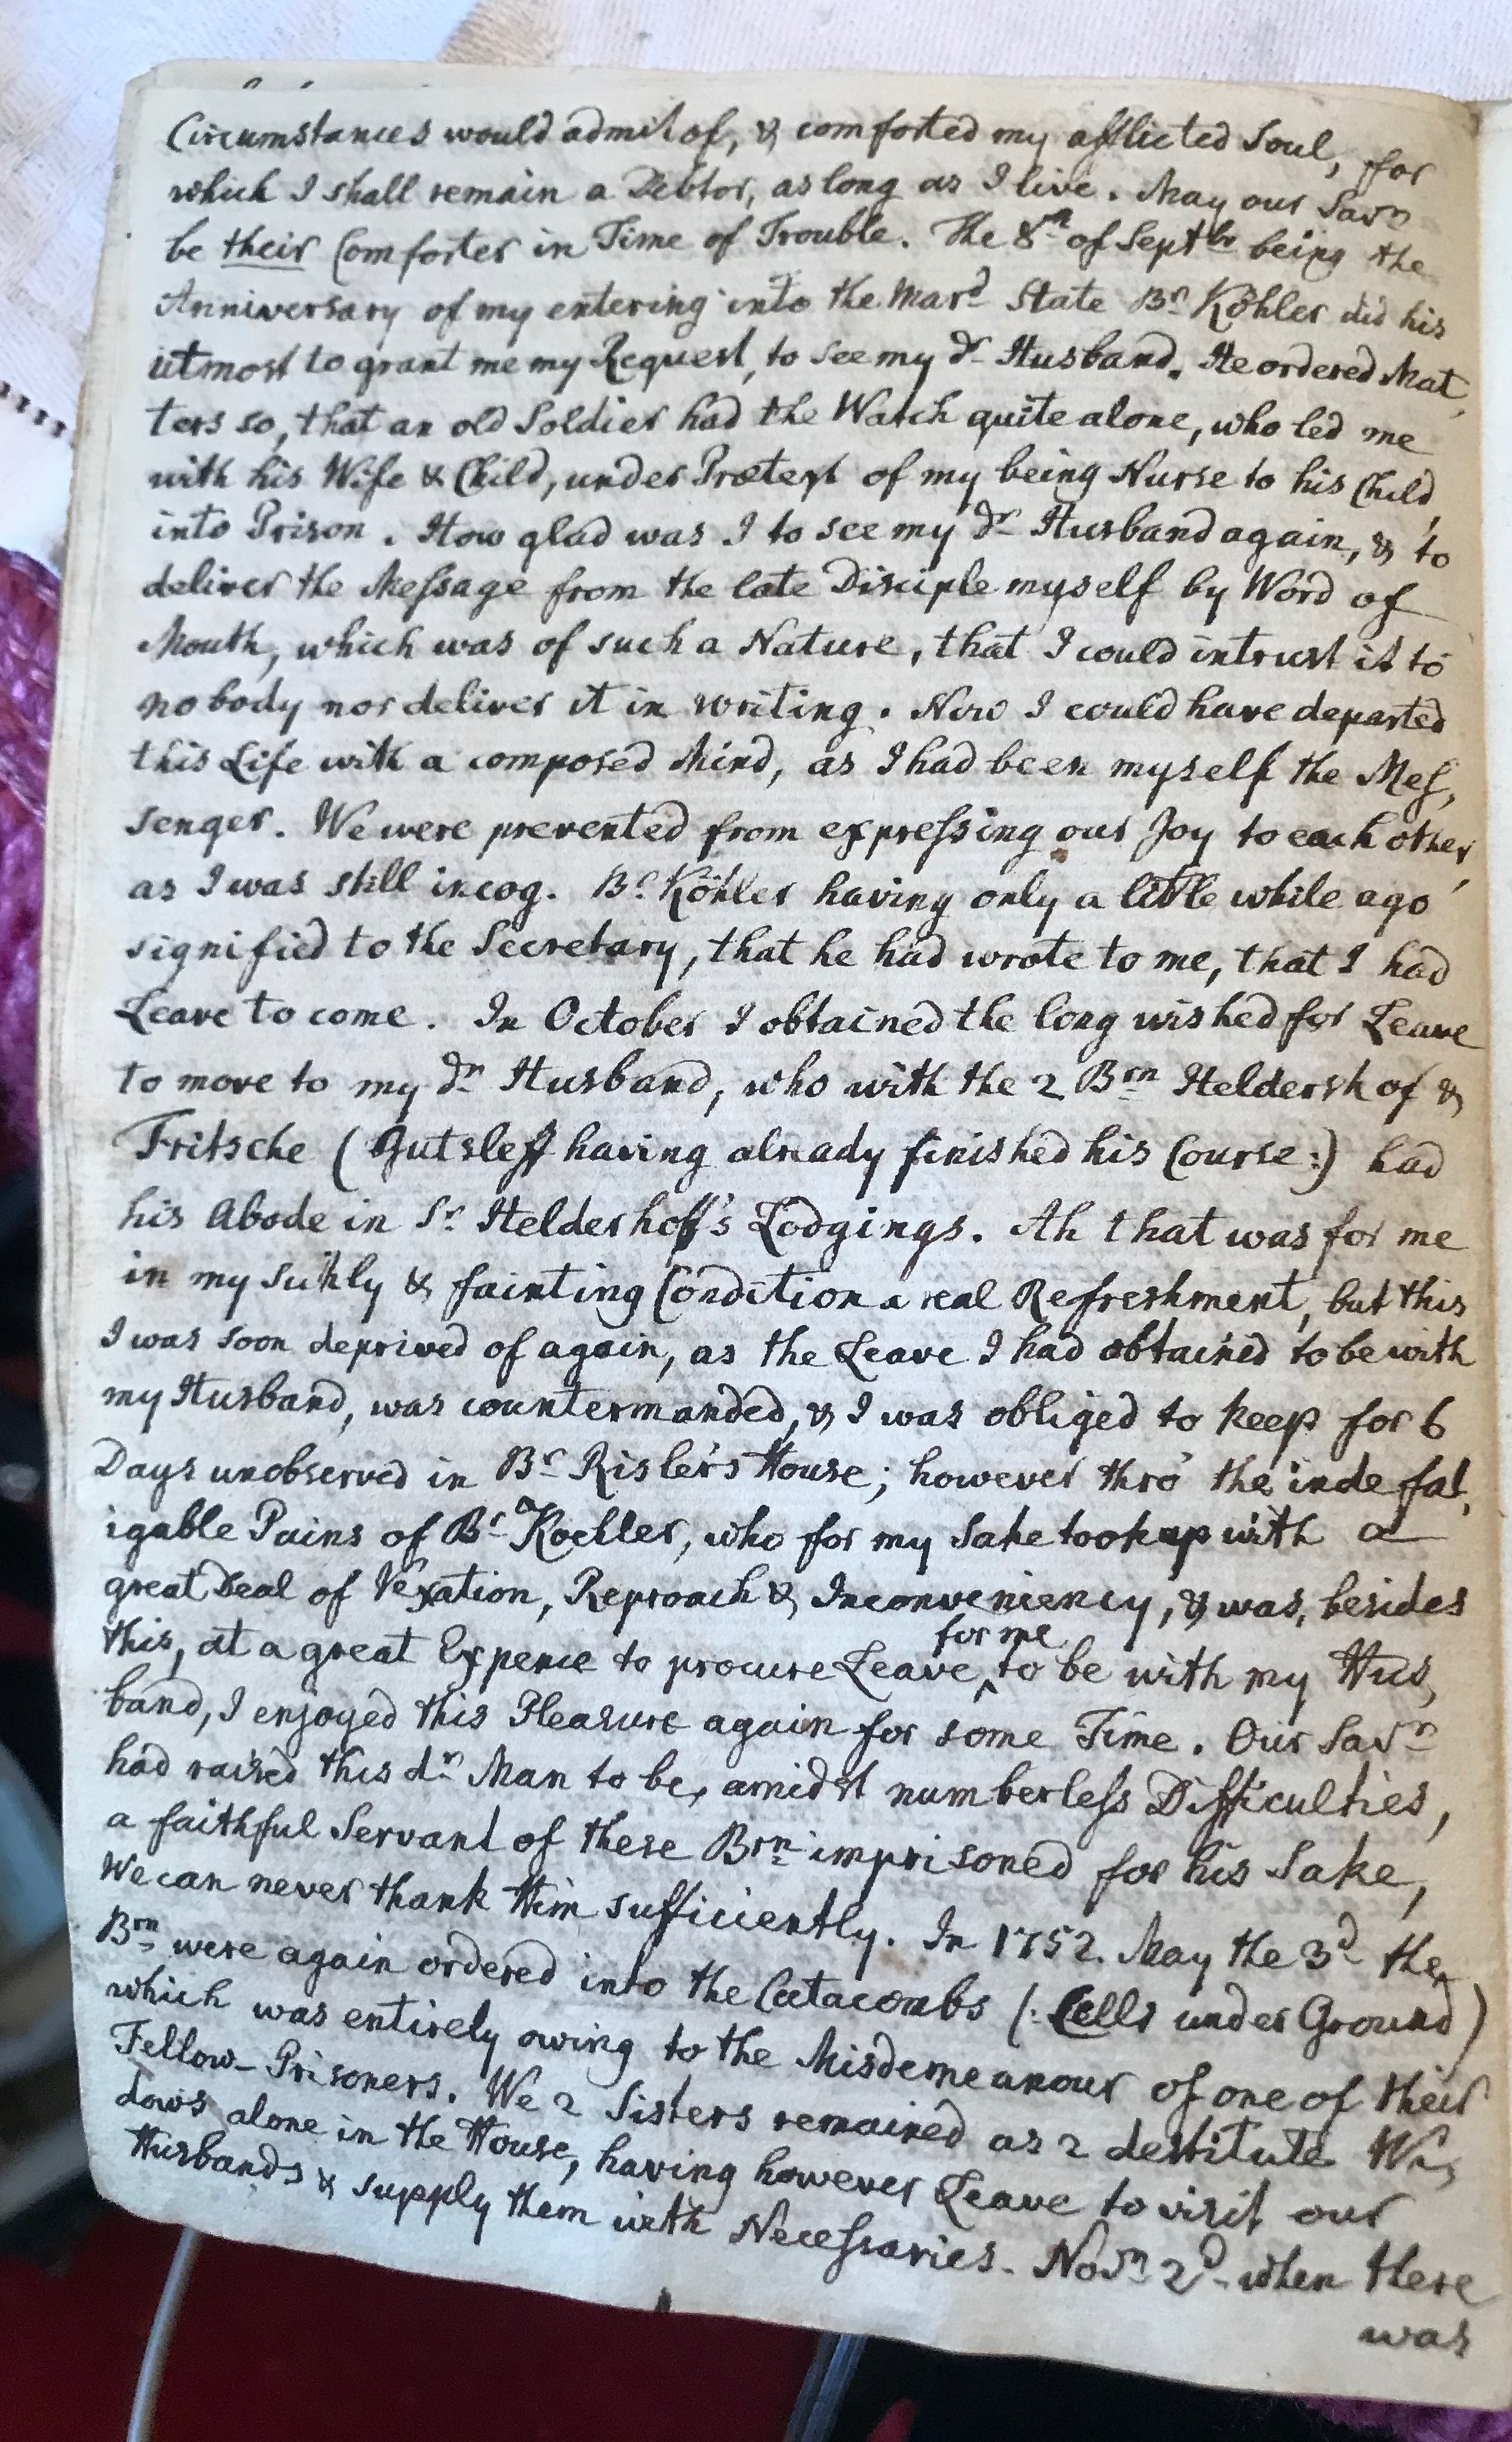 Circumstances would admit of, & comforted my afflicted Soul, for
which I shall remain a Debtor, as long as I live. May our Savr
be their Comforter in Time of Trouble. The 8th of Septbr being the
Anniversary of my entering into the Mard State Br Köhler did his
utmost to grant me my Request, to see my dr Husband. He ordered Mat,
ters so, that an old Soldier had the Watch quite alone, who led me
with his Wife & Child, under Pretext of my being Nurse to his Child,
into Prison. How glad was I to see my dr Husband again, & to
deliver the Message from the late Disciple myself by Word of
Mouth, which was of such a Nature, that I could intrust it to
nobody nor deliver it in writing. Now I could have departed
this Life with a composed Mind, as I had been myself the Mes,
senger. We were prevented from expressing our Joy to each other,
as I was still incog. Br Köhler having only a little while ago
signified to the Secretary, that he had wrote to me, that I had
Leave to come. In October I obtained the long wished for Leave
to move to my dr Husband, who with the 2 Brn Heldershof &
Fritsche (Gutsleff having already finished his Course:) had
his Abode in Sr Heldershoff's Lodgings. Ah that was for me
in my sickly & fainting Condition a real Refreshment, but this
I was soon deprived of again, as the Leave I had obtained to be with
my Husband, was countermanded, & I was obliged to keep for 6
Days unobserved in Br Risler's House; however thro' the indefat,
igable Pains of Br Koehler, who for my Sake took up with a
great Deal of Vexation, Reproach & Inconveniency, & was, besides
this, at a great Expence to procure Leave for me to be with my Hus,
band, I enjoyed this Pleasure again for some Time. Our Savr
had raised this dr Man to be, amidst numberless Difficulties,
a faithful Servant of these Brn imprisoned for his Sake,
We can never thank Him sufficiently. In 1752. May the 3d the
Brn were again ordered into the Catacombs (: Cells under Ground)
which was entirely owing to the Misdemeanour of one of their
Fellow-Prisoners. We 2 Sisters remained as 2 destitute Wi,
dows alone in the House, having however Leave to visit our
Husbands & supply them with Necessaries. Novr 2d when there
was